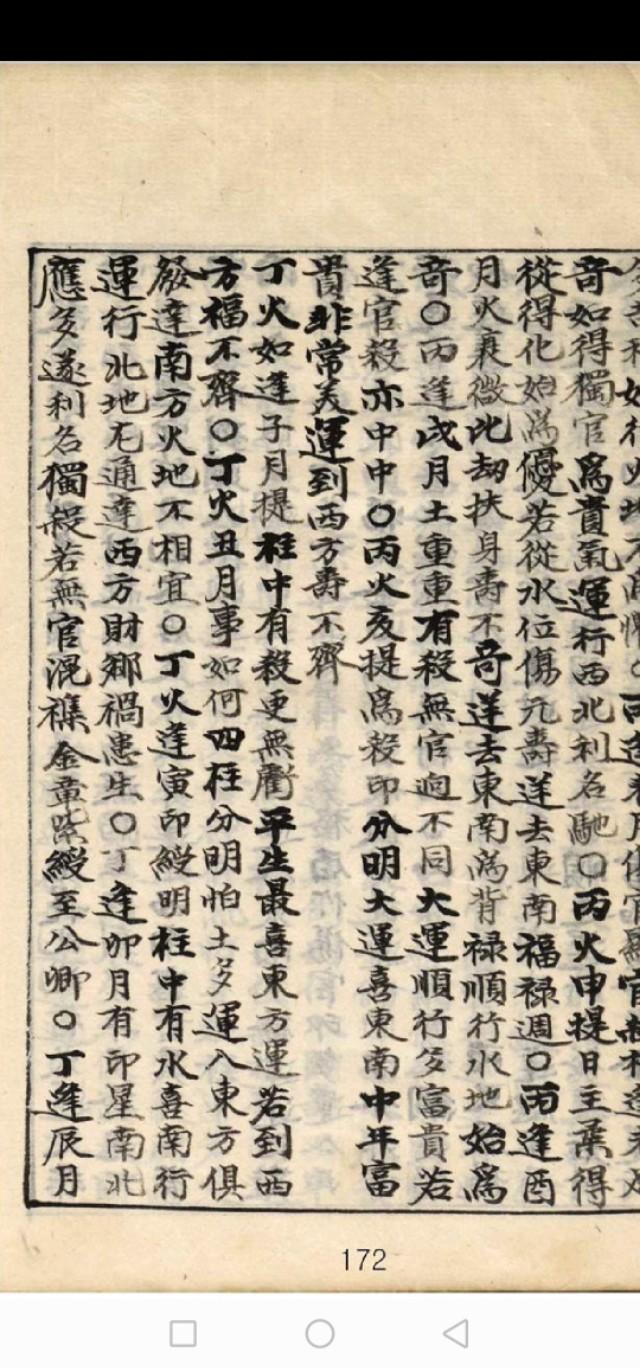 奇如得獨官爲貴氣運行西北利名馳○丙火申提日主柔得
從得化始爲優若從水位傷元壽逆去東南福禄週○丙逢酉
月火衰微比劫扶身壽不奇逆去東南爲背禄順行水地始爲
奇○丙逢戌月土重重有殺無官逈不同大運順行多富貴若
逢官殺亦中中○丙火亥提爲殺印分明大運喜東南中年富
貴非常美運到西方壽不齊
丁火如逢子月提柱中有殺更無衝平生最喜東方運若到西
方福不齊○丁火丑月事如何四柱分明怕土多運入東方俱
發達南方火地不相宜○丁火逢寅印綬明柱中有水喜南行
運行北地尤通達西方財鄉禍患生○丁逢卯月有印星南北
應多遂利名獨殺若無官混襍金章紫綬至公卿○丁逢辰月
172